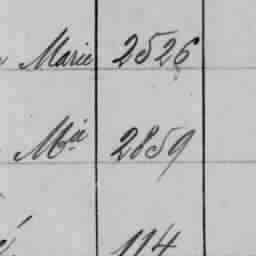 Marie 2526
Mia 2859
114